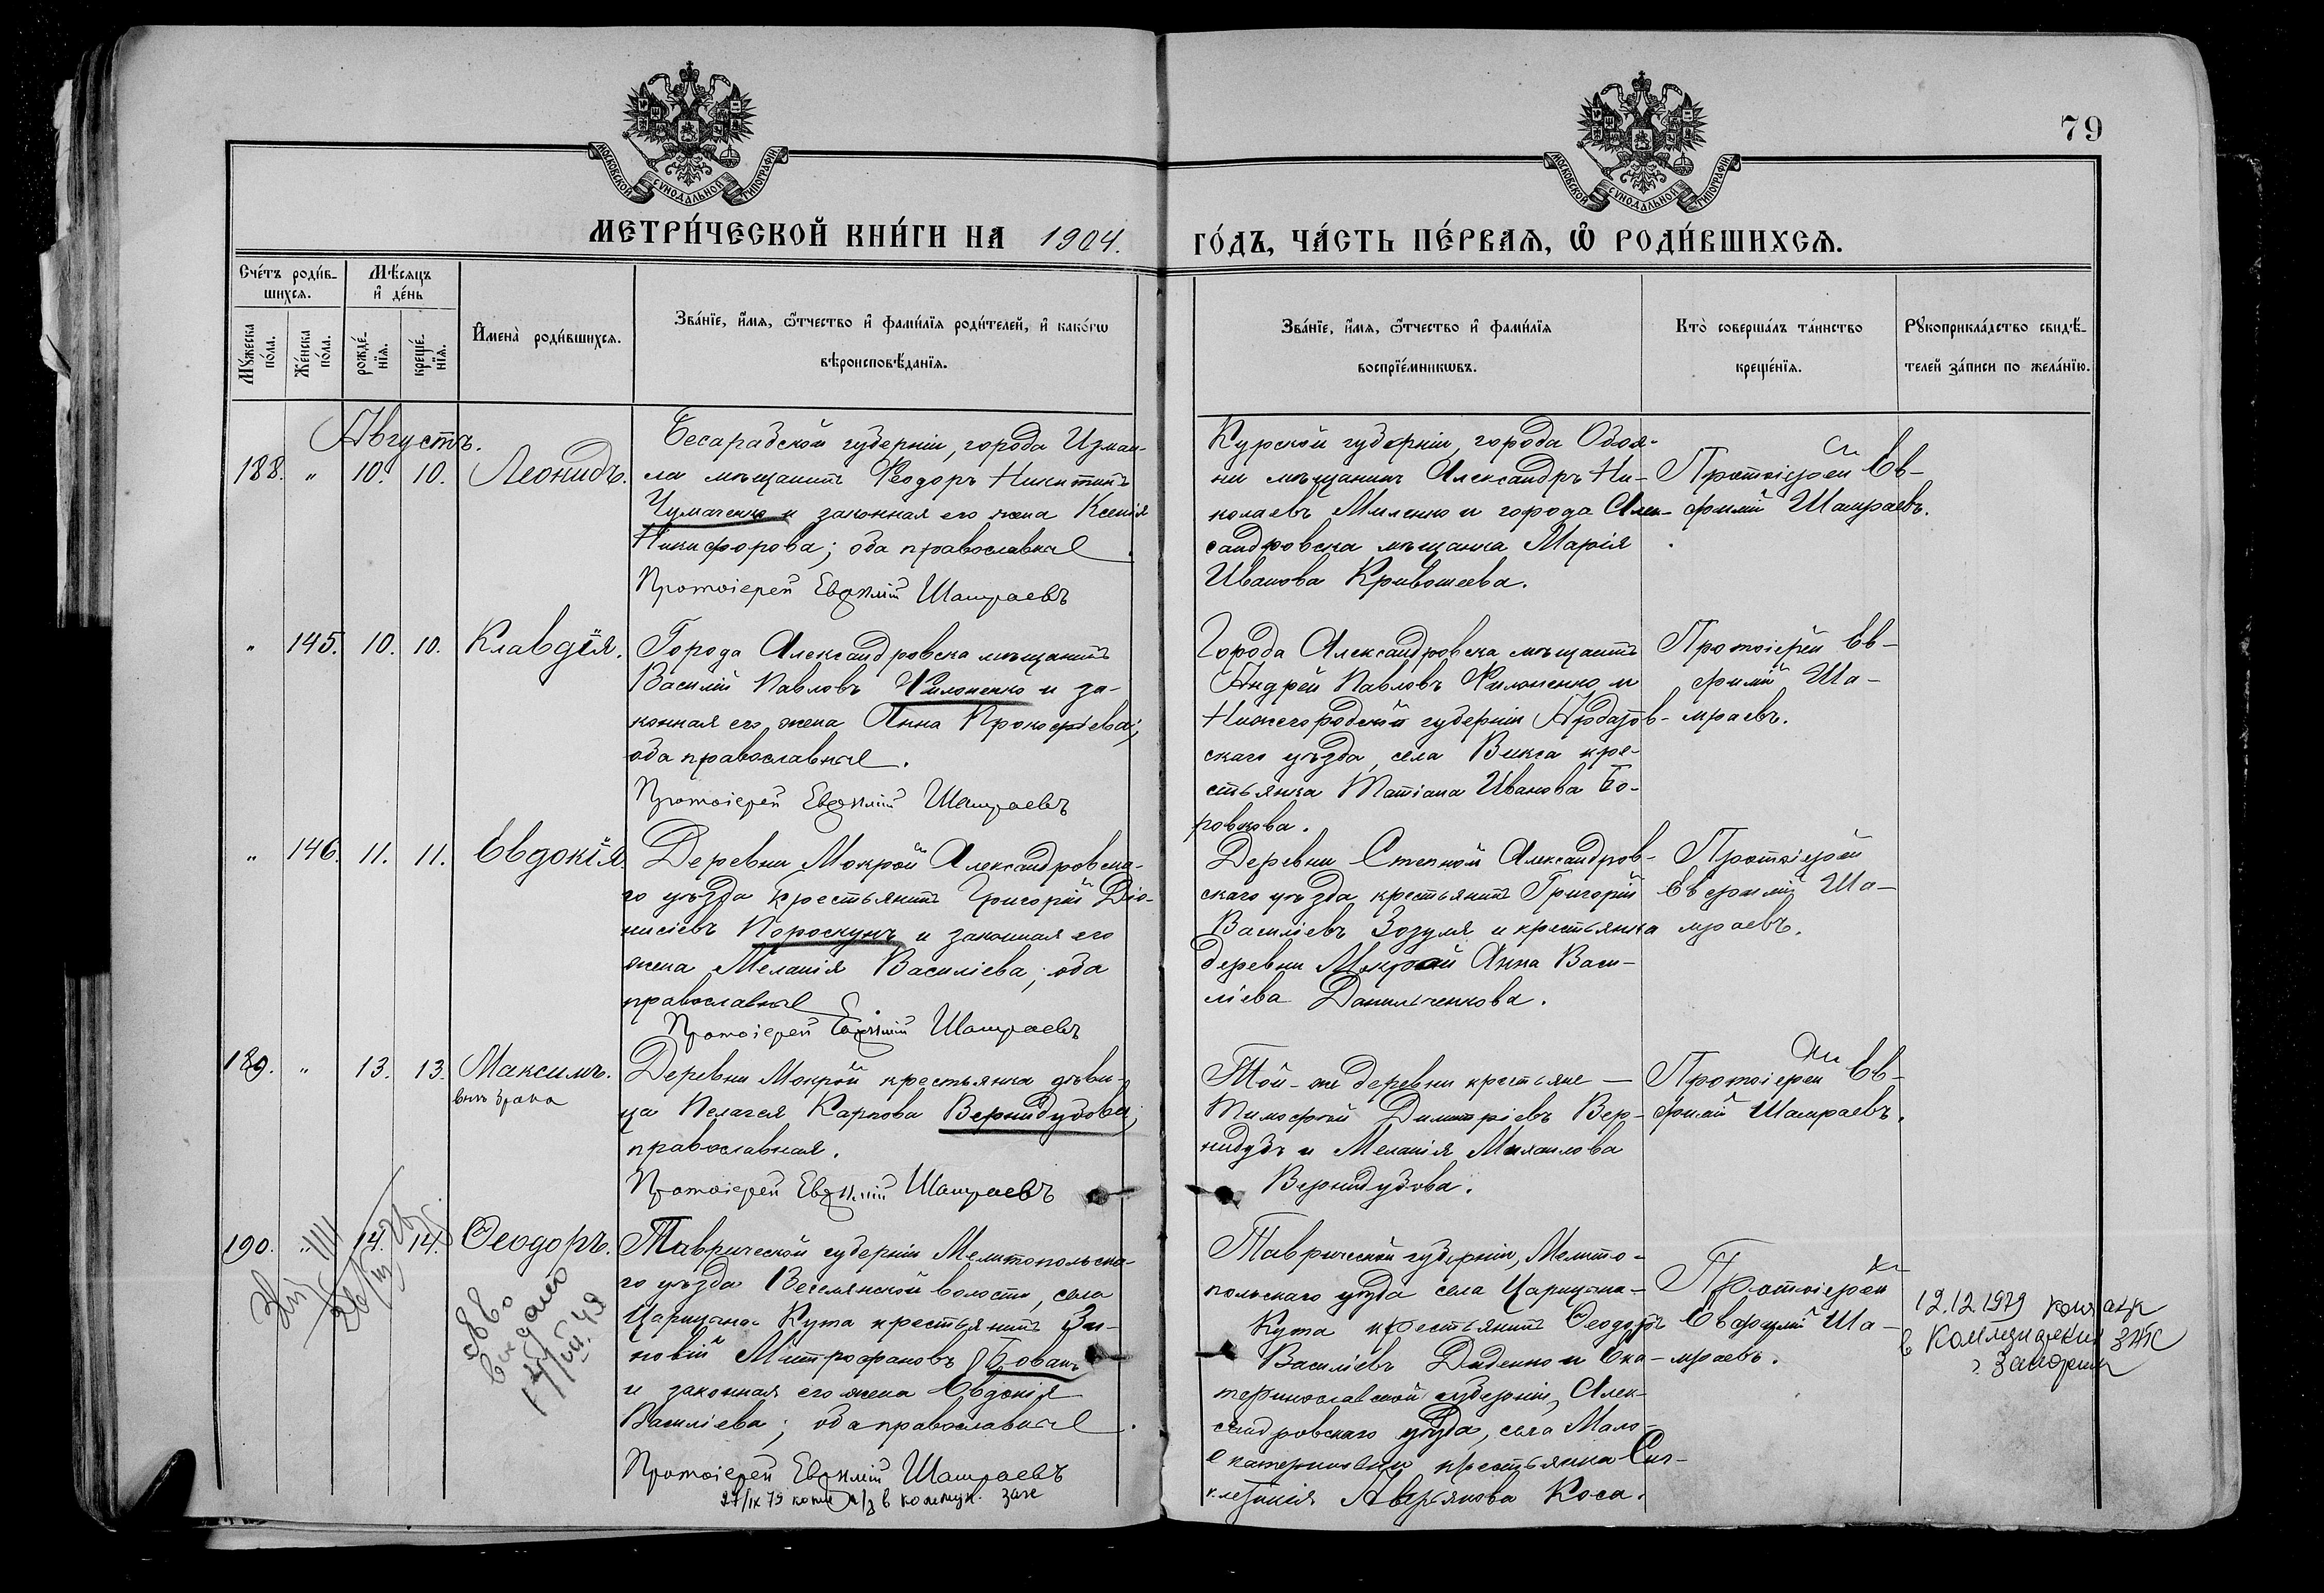 79
МОСКОВСКОЙ СѴНОДАЛЬНОЙ ТИПОГРАФІИ
МОСКОВСКОЙ СѴНОДАЛЬНОЙ ТИПОГРАФІИ
МЕТРИ́ЧЕСКОЙ КНИ́ГИ НА 1904.
ГО́ДЪ, ЧА́СТЬ ПЕ́РВАѦ, Ѡ҆ РОДИ́ВШИХСѦ.
Сче́тъ роди́в-
шихсѧ.
Мѣ́сѧцъ
и҆ де́нь
Мꙋ́жеска
по́ла.
Же́нска
по́ла.
рожде́-
нїѧ.
креще́-
нїѧ.
И҆мена̀ роди́вшихсѧ.
Зва́нїе, и҆́мѧ, ѻ҆́тчество и҆ фами́лїѧ роди́телей, и҆ како́гѡ
вѣроисповѣ́данїѧ.
Зва́нїе, и҆́мѧ, ѻ҆́тчество и҆ фами́лїѧ
воспрїе́мникѡвъ.
Кто̀ соверша́лъ та́инство
креще́нїѧ.
Рꙋкоприкла́дство свидѣ́-
телей за́писи по жела́нїю.
Августъ.
188. " 10. 10. Леонидъ.
Бесарабской губерніи, города Измаи-
ла мѣщанинъ Ѳеодоръ Никитинъ
Чумаченко и законная его жена Ксенія
Никифорова; оба православные.
Протоіерей Евѳимій Шамраевъ
Курской губерніи, города Обоя-
ни мѣщанинъ Александръ Ни-
колаевъ Миленко и города Алек-
сандровска мѣщанка Марія
Иванова Кривошеева.
Протоіерей Ев-
фимій Шамраевъ.
" 145. 10. 10. Клавдія.
Города Александровска мѣщанинъ
Василій Павловъ Филоненко и за-
конная его жена Анна Прокофіева;
оба православные.
Протоіерей Евѳимій Шамраевъ
Города Александровска мѣщанинъ
Андрей Павловъ Филоненко и
Нижегородской губерніи Ардатов-
скаго уѣзда, села Выкса кре-
стьянка Татіана Иванова Бо-
ровкова.
Протоіерей Ев-
фимій Ша-
мраевъ.
" 146. 11. 11. Евдокія.
Деревни Мокрой Александровска-
го уѣзда крестьянинъ Григорій Діо-
нисіевъ Пороскунъ и законная его
жена Меланія Василіева; оба
православные
Протоіерей Евѳимій Шамраевъ
Деревни Степной Александров-
скаго уѣзда крестьянинъ Григорій
Василіевъ Зозуля и крестьянка
деревни Мокрой Анна Васи-
ліева Данильченкова.
Протоіерей
Евфимій Ша-
мраевъ.
189. " 13. 13. Максимъ.
внѣ брака
Деревни Мокрой крестьянка дѣви-
ца Пелагея Карпова Вернидубова;
православная.
Протоіерей Евѳимій Шамраевъ
Той-же деревни крестьяне —
Тимофей Димитріевъ Вер-
нидубъ и Меланія Михаилова
Вернидубова.
Протоіерей Ев-
фимій Шамраевъ.
190. " 14. 14. Ѳеодоръ.
Таврической губерніи Мелитопольска-
го уѣзда Веселянской волости, села
Царицына-Кута крестьянинъ Зи-
новій Митрофановъ Бованъ
и законная его жена Евдокія
Василіева; оба православные.
Протоіерей Евѳимій Шамраевъ
Таврической губерніи, Мелито-
польскаго уѣзда села Царицына-
Кута крестьянинъ Ѳеодоръ
Василіевъ Диденко и Ека-
теринославской губерніи, Алек-
сандровскаго уѣзда, села Мало-
Екатериновки крестьянка Син-
клетикія Аверьянова Коса.
Протоіерей
Евфимій Ша-
мраевъ.
12.12.1979
в Коммунарский ЗАГС
св-во
выдано